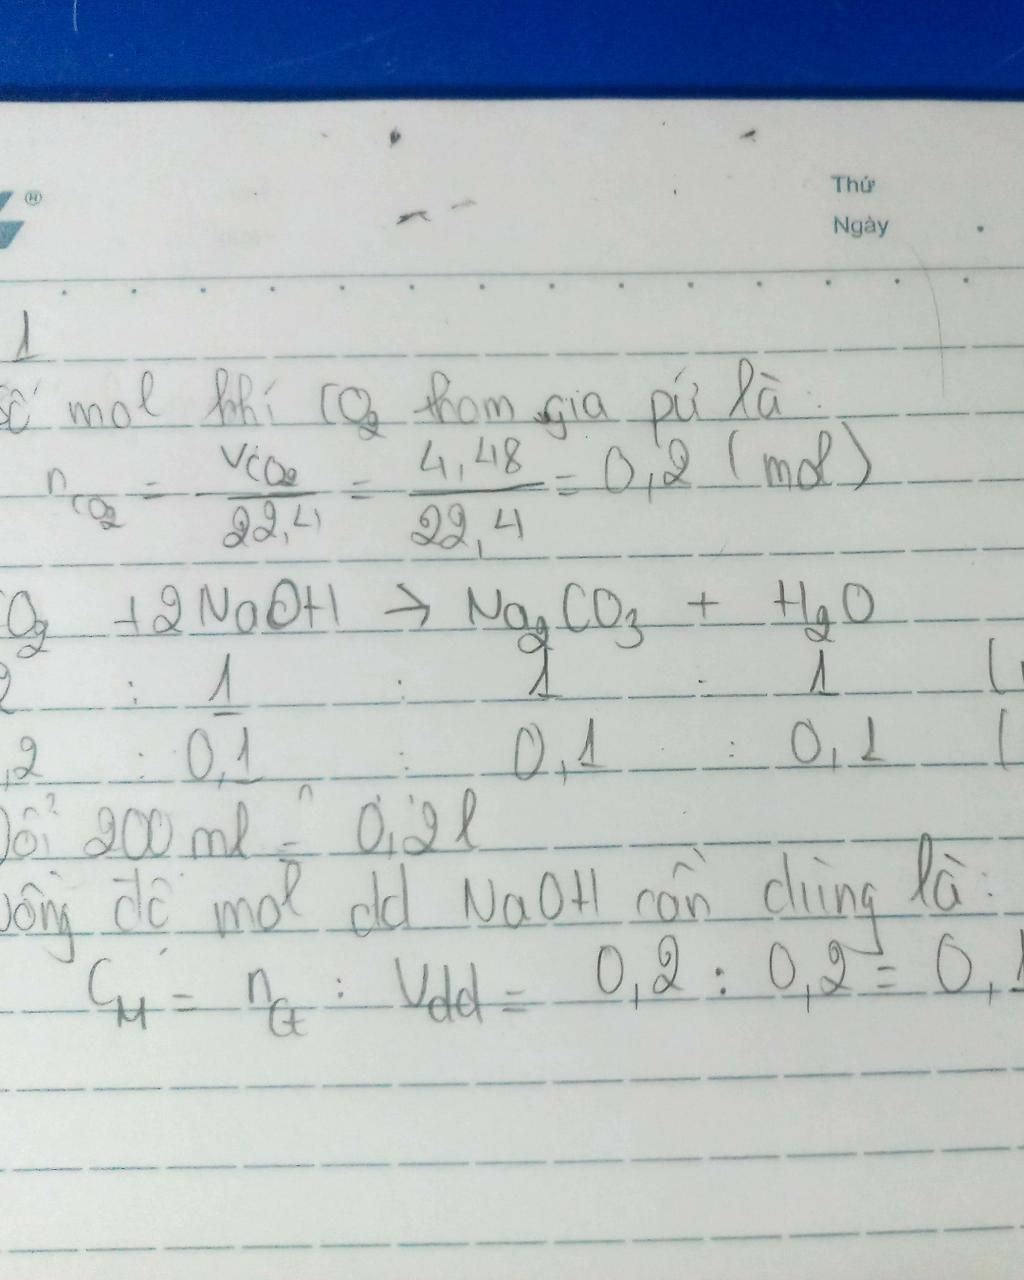 ®
Thứ
Ngày
1
số mol khí CO2 tham gia pứ là:
nCO2 = VCO2/22,4 = 4,48/22,4 = 0,2 (mol)
O2 + 2NaOH → Na2CO3 + H2O
2 : 1 : 1 : 1 (
,2 : 0,1 : 0,1 : 0,1 (
Đổi 200 ml = 0,2l
ồng độ mol dd NaOH cần dùng là:
CM = nct : Vdd = 0,2 : 0,2 = 0,1